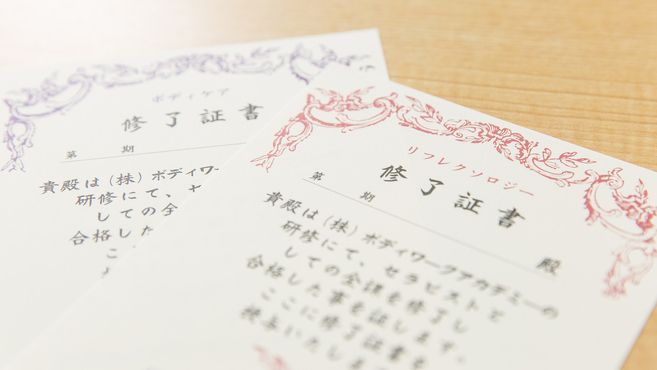 ボディケア
修了証書
第 期
貴殿は(株)ボディワー
研修にて、セ
しての全
合格した
こ
リフレクソロジー
修了証書
第 期
殿
貴殿は(株)ボディワークアカデミーの
研修にて、セラピストと
しての全課を修了し
合格した事を証します。
ここに修了証書を
授与いたしま